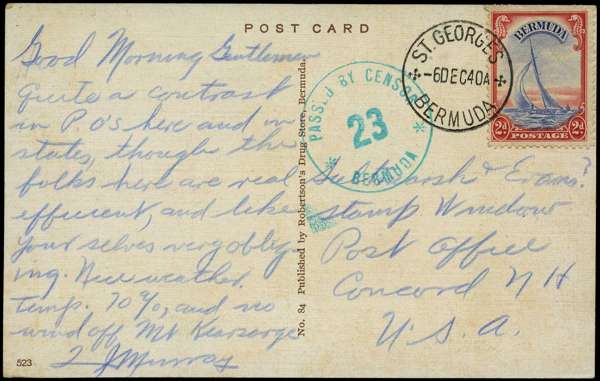 POST CARD
Good Morning Gentlemen
Quite a contrast
in P.O's here and in
states, though the
folks here are real
efficient, and like
your selves very oblig-
ing. Nice weather.
temp. 70%, and no
wind off Mt Kearsarge
Murray
523
No. 84 Published by Robertson's Drug Store, Bermuda.
PASSED BY CENSOR
23
BERMUDA
ST. GEORGES
-6DEC40A
BERMUDA
BERMUDA
2d POSTAGE 2d
& Evans?
Stamp Window
Post Office
Concord N H
U. S. A.